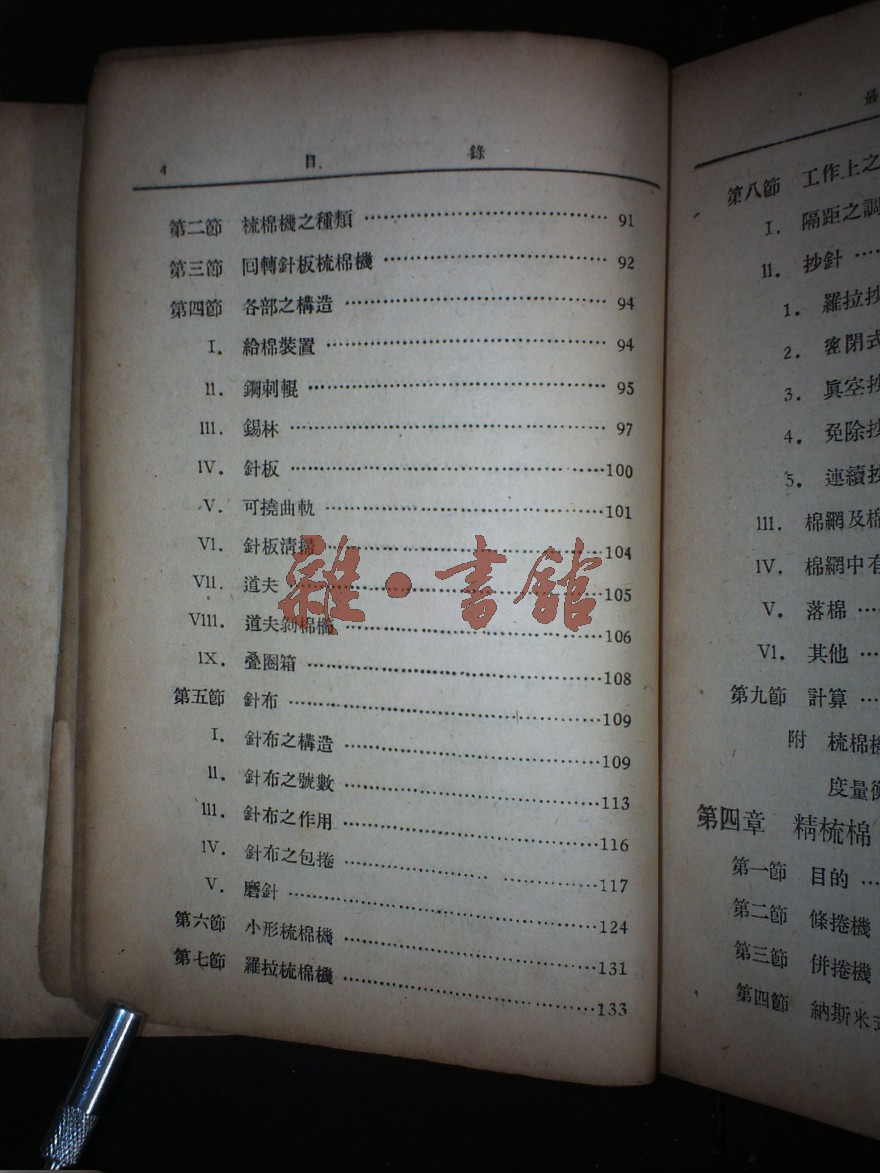 4 目 錄
第二節 梳棉機之種類 …………………… 91
第三節 回轉針板梳棉機 …………………… 92
第四節 各部之構造 …………………… 94
I. 給棉裝置 …………………… 94
II. 鋼刺輥 …………………… 95
III. 錫林 …………………… 97
IV. 針板 …………………… 100
V. 可撓曲軌 …………………… 101
VI. 針板清掃 …………………… 104
VII. 道夫 …………………… 105
VIII. 道夫剝棉 …………………… 106
IX. 疊圈箱 …………………… 108
第五節 針布 …………………… 109
I. 針布之構造 …………………… 109
II. 針布之號數 …………………… 113
III. 針布之作用 …………………… 116
IV. 針布之包捲 …………………… 117
V. 磨針 …………………… 124
第六節 小形梳棉機 …………………… 131
第七節 羅拉梳棉機 …………………… 133
雜·書館
最
第八節 工作上之
I. 隔距之調
II. 抄針 …
1. 羅拉抄
2. 密閉式
3. 眞空抄
4. 免除抄
5. 連續抄
III. 棉網及棉
IV. 棉網中有
V. 落棉 …
VI. 其他 …
第九節 計算 …
附 梳棉機
度量衡
第四章 精梳棉
第一節 目的 …
第二節 條捲機
第三節 併捲機
第四節 納斯米式